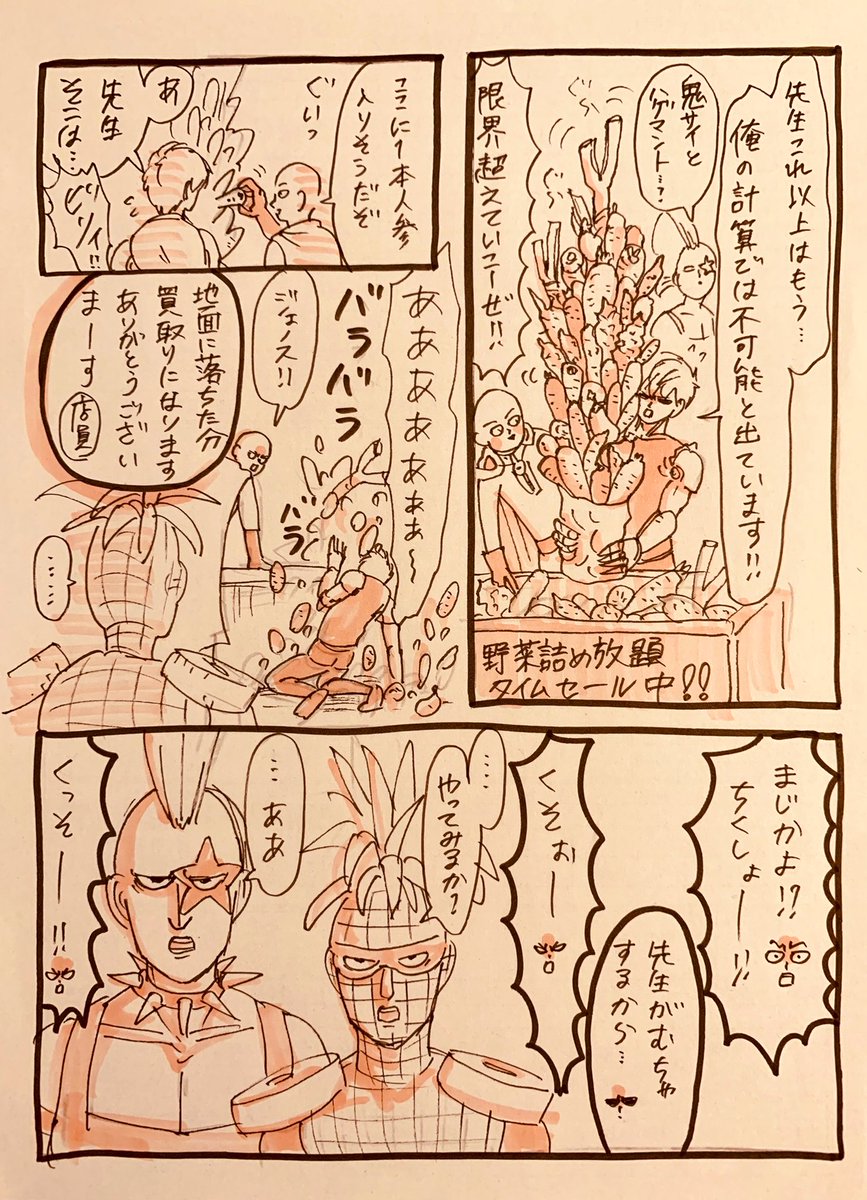 先生これ以上はもう…
俺の計算では不可能と出ています!!
鬼サイと
ハゲマント…?
ぐらっ
ぐらっ
限界超えていこーぜ!!
野菜詰め放題
タイムセール中!!
ここに1本人参
入りそうだぞ
ぐいっ
あ
先生
そこは…
ビリィ!!
ああああああぁぁ〜
バラバラ
バラ
ジェノス!!
地面に落ちた分
買取りになります
ありがとうござい
まーす
店員
……
まじかよ!?
ちくしょー!!
先生がむちゃ
するから…
くそぉー
……
やってみるか?
…ああ
くっそー!!